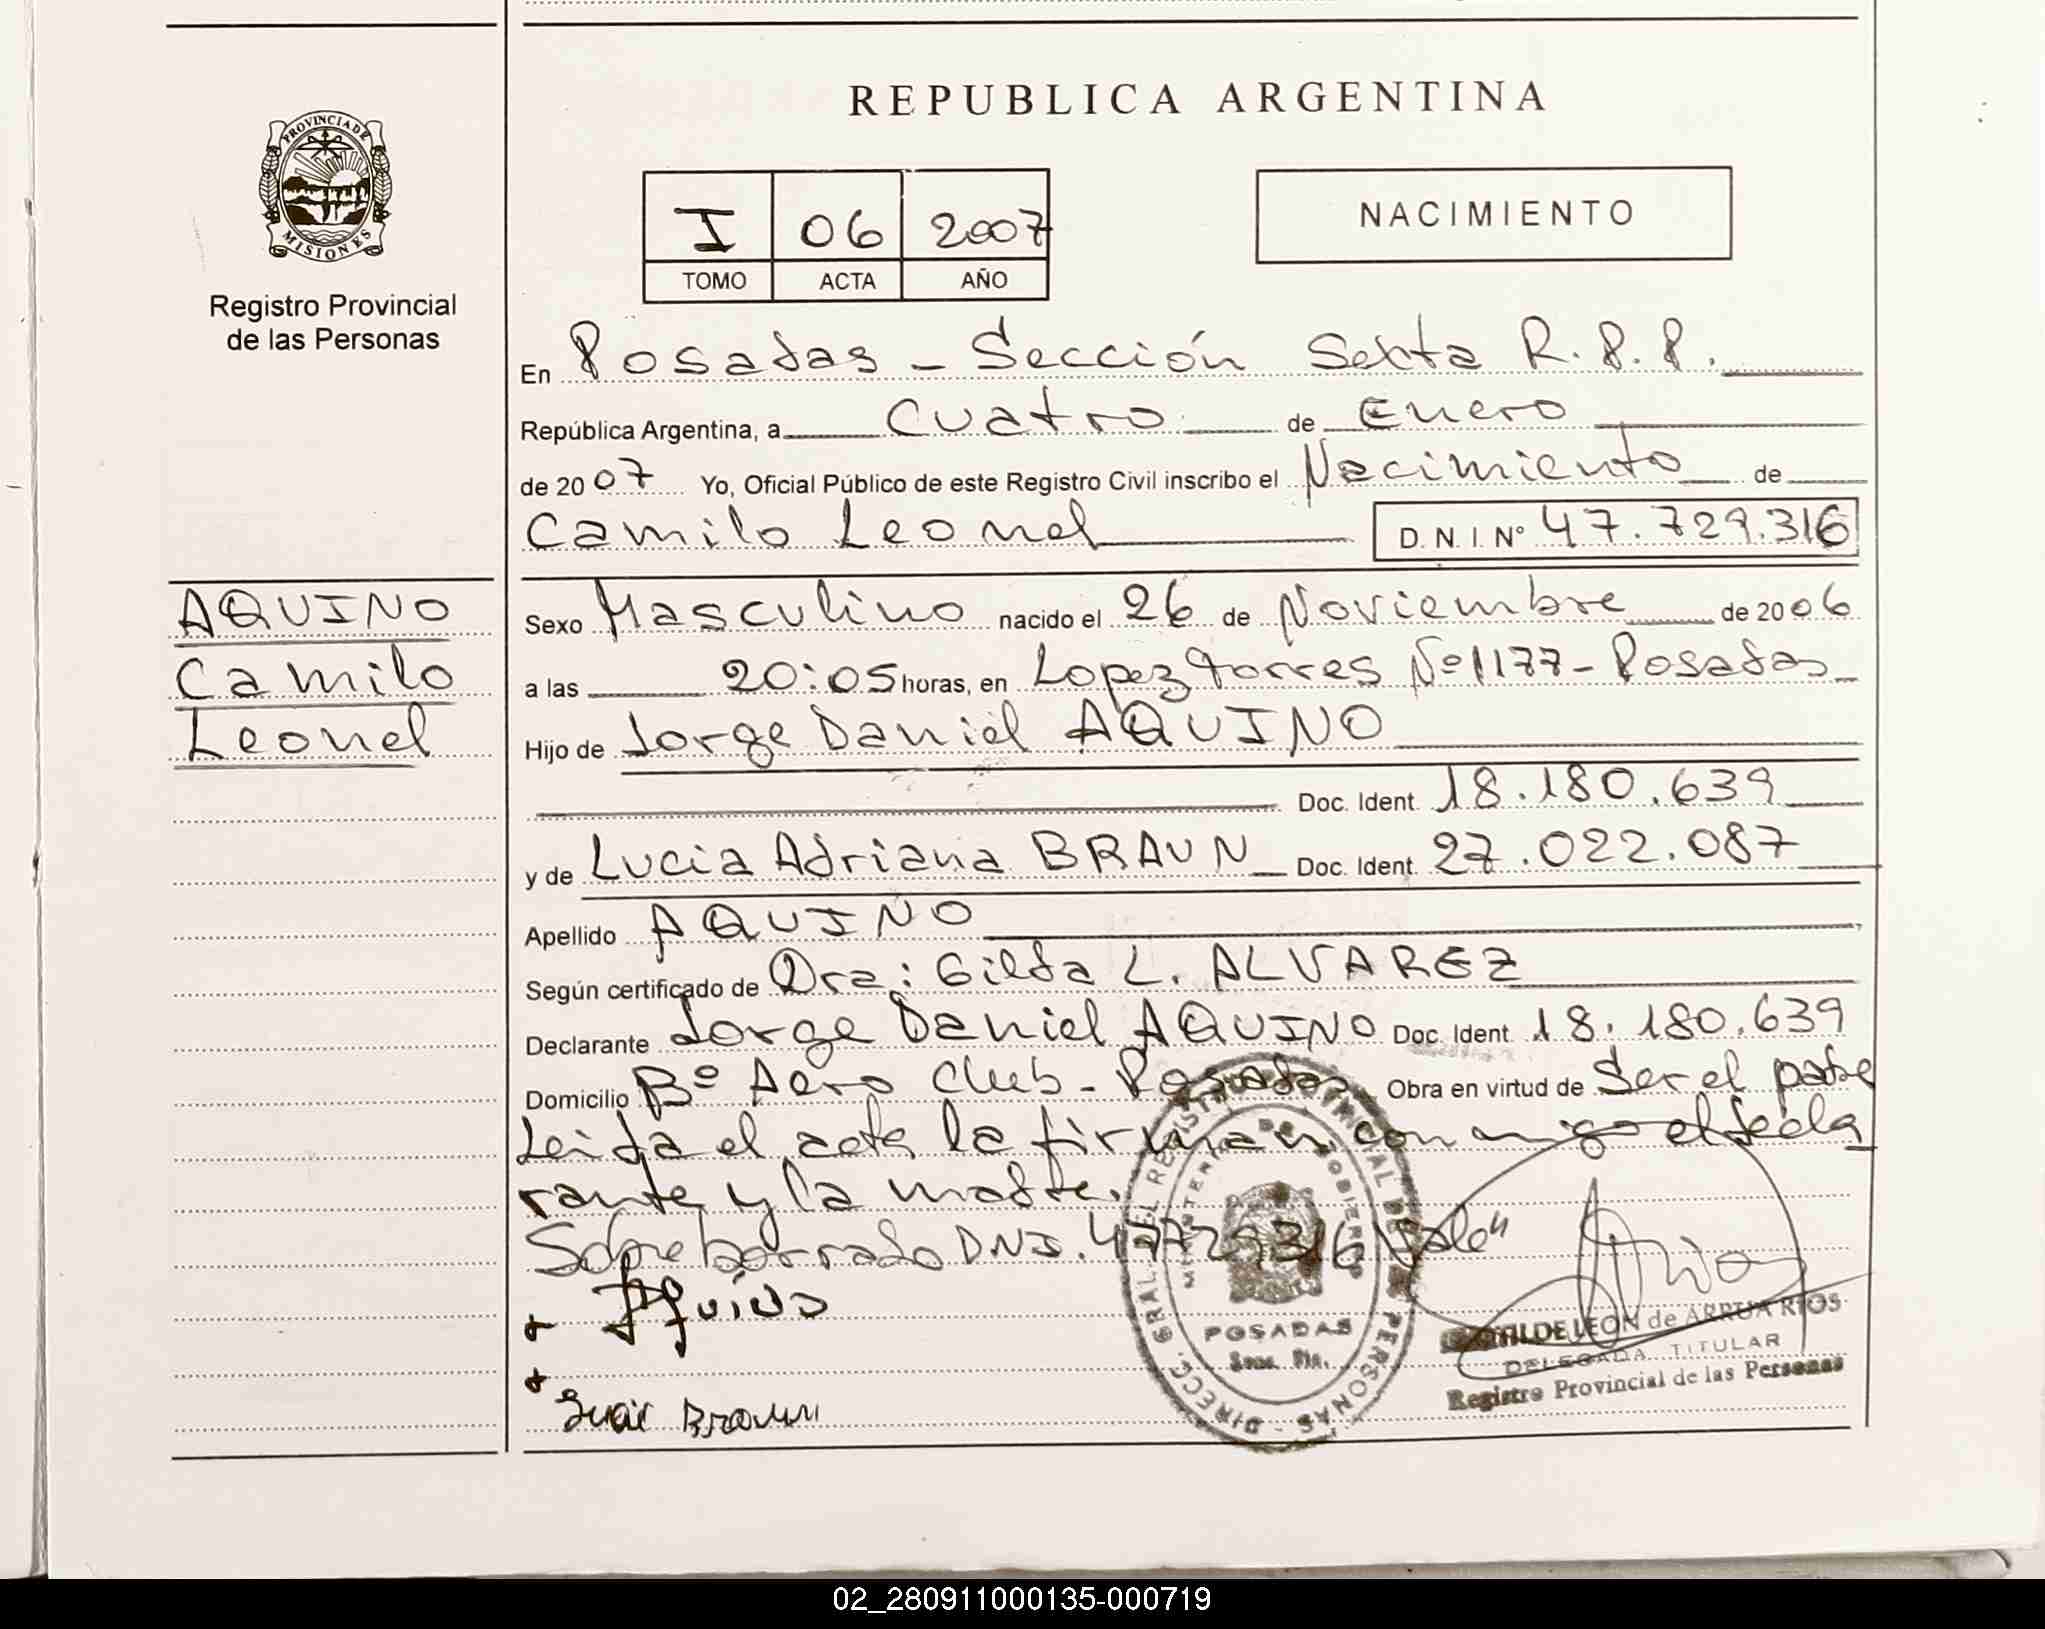 REPUBLICA ARGENTINA
PROVINCIA DE
MISIONES
Registro Provincial
de las Personas
I 06 2007
TOMO ACTA AÑO
NACIMIENTO
En Posadas - Sección Sexta R.P.P.
República Argentina, a Cuatro de Enero
de 2007 Yo, Oficial Público de este Registro Civil inscribo el Nacimiento de
Camilo Leonel D.N.I. Nº 47.729.316
AQUINO
Camilo
Leonel
Sexo Masculino nacido el 26 de Noviembre de 2006
a las 20:05 horas, en Lopez Torres Nº 1177 - Posadas
Hijo de Jorge Daniel AQUINO
Doc. Ident. 18.180.639
y de Lucia Adriana BRAUN Doc. Ident. 27.022.087
Apellido AQUINO
Según certificado de Dra: Gilda L. ALVAREZ
Declarante Jorge Daniel AQUINO Doc. Ident. 18.180.639
Domicilio Bº Aero Club - Posadas Obra en virtud de Ser el padre
Leida el acta la firman conmigo el decla
rante y la madre.
Sobreborrado DNI. 47729316 Vale"
Aquino
Lucia Braun
DIRECC. GRAL. DEL REGISTRO PROVINCIAL DE LAS PERSONAS
MINISTERIO DE GOBIERNO
POSADAS
DE LEON de ARRUA RIOS
DELEGADA TITULAR
Registro Provincial de las Personas
02_280911000135-000719